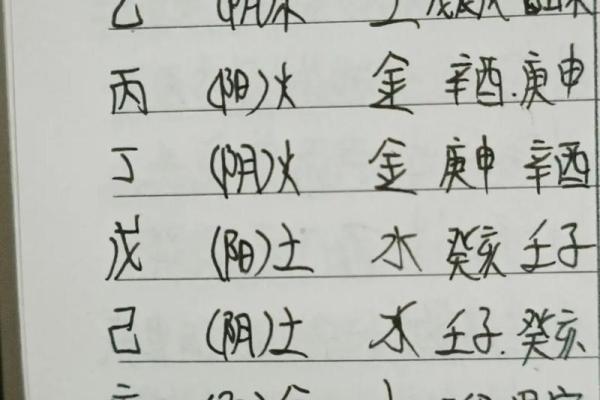 乙 (阴)木 土
丙 (阳)火 金 辛酉.庚申
丁 (阴)火 金 庚申 辛酉
戊 (阳)土 水 癸亥 壬子
己 (阴)土 水 壬子.癸亥